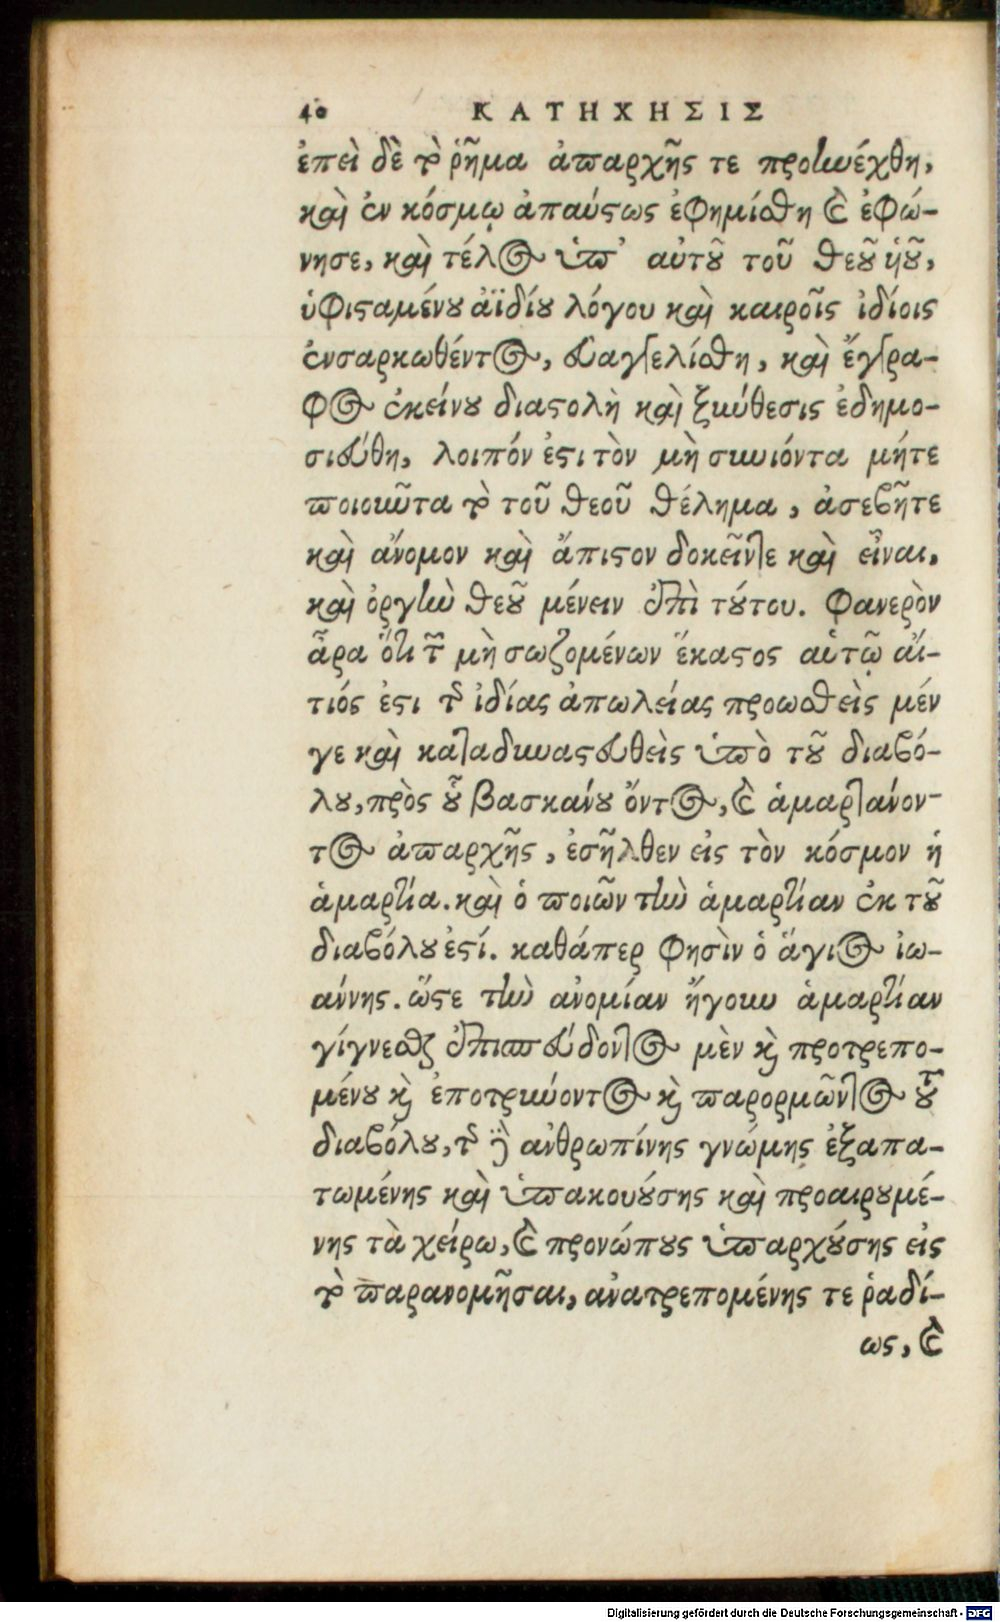 40 ΚΑΤΗΧΗΣΙΣ
ἐπεὶ δὲ τὸ ῥῆμα ἀπαρχῆς τε προηνέχθη,
καὶ ἐν κόσμῳ ἀπαύστως ἐφημίσθη καὶ ἐφώ-
νησε, καὶ τέλος ὑπ' αὐτοῦ τοῦ θεοῦ ὑοῦ,
ὑφισταμένου ἀϊδίου λόγου καὶ καιροῖς ἰδίοις
ἐνσαρκωθέντος, εὐαγγελίσθη, καὶ ἔγγρα-
φος ἐκείνου διαστολὴ καὶ ξυνύθεσις ἐδημο-
σιεύθη, λοιπόν ἐστι τὸν μὴ συνιόντα μήτε
ποιοῦντα τὸ τοῦ θεοῦ θέλημα, ἀσεβῆτε
καὶ ἄνομον καὶ ἄπιστον δοκεῖν τε καὶ εἶναι,
καὶ ὀργὴν θεοῦ μένειν ἐπὶ τούτου. Φανερὸν
ἆρα ὅτι τῶν μὴ σωζομένων ἕκαστος αὑτῷ αἴ-
τιός ἐστι τῆς ἰδίας ἀπωλείας προωσθεὶς μέν
γε καὶ καταδυναστευθεὶς ὑπὸ τοῦ διαβό-
λου, πρὸς οὗ βασκάνου ὄντος, καὶ ἁμαρτάνον-
τος ἀπαρχῆς, ἐσῆλθεν εἰς τὸν κόσμον ἡ
ἁμαρτία. καὶ ὁ ποιῶν τὴν ἁμαρτίαν ἐκ τοῦ
διαβόλου ἐστί. καθάπερ φησὶν ὁ ἅγιος ἰω-
άννης. ὥστε τὴν ἀνομίαν ἤγουν ἁμαρτίαν
γίγνεσθαι ἐπισπεύδοντος μὲν καὶ προτρεπο-
μένου καὶ ἐποτρύνοντος καὶ παρορμῶντος τοῦ
διαβόλου, τῆς δὲ ἀνθρωπίνης γνώμης ἐξαπα-
τωμένης καὶ ὑπακουούσης καὶ προαιρουμέ-
νης τὰ χείρω, καὶ προνώπους ὑπαρχούσης εἰς
τὸ παρανομῆσαι, ἀνατρεπομένης τε ῥαδί-
ως, καὶ
Digitalisierung gefördert durch die Deutsche Forschungsgemeinschaft - DFG